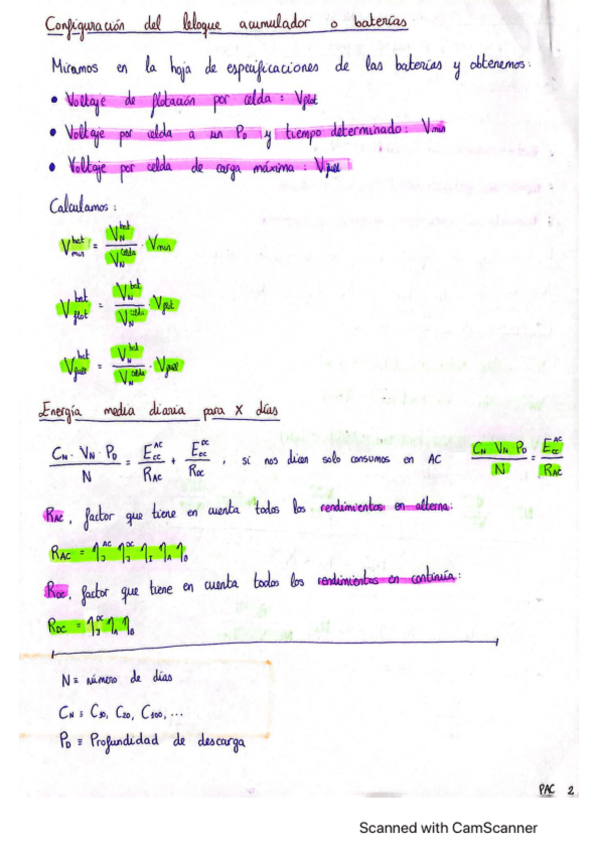 Configuración del bloque acumulador o baterías
Miramos en la hoja de especificaciones de las baterías y obtenemos:
• Voltaje de flotación por celda: Vflot
• Voltaje por celda a un PD y tiempo determinado: Vmin
• Voltaje por celda de carga máxima: Vgass
Calculamos:
Vmin^bat = VN^bat / VN^celda · Vmin
Vflot^bat = VN^bat / VN^celda · Vflot
Vgass^bat = VN^bat / VN^celda · Vgass
Energía media diaria para X días
CN · VN · PD / N = Eec^AC / RAC + Eec^DC / RDC, si nos dicen solo consumos en AC CN VN PD / N = Eec^AC / RAC
RAC, factor que tiene en cuenta todos los rendimientos en alterna:
RAC = ηJ^AC ηJ^DC ηI ηA ηB
RDC, factor que tiene en cuenta todos los rendimientos en continua:
RDC = ηJ^DC ηA ηB
N = número de días
CN ≡ C10, C20, C100, ...
PD ≡ Profundidad de descarga
PAC 2
Scanned with CamScanner